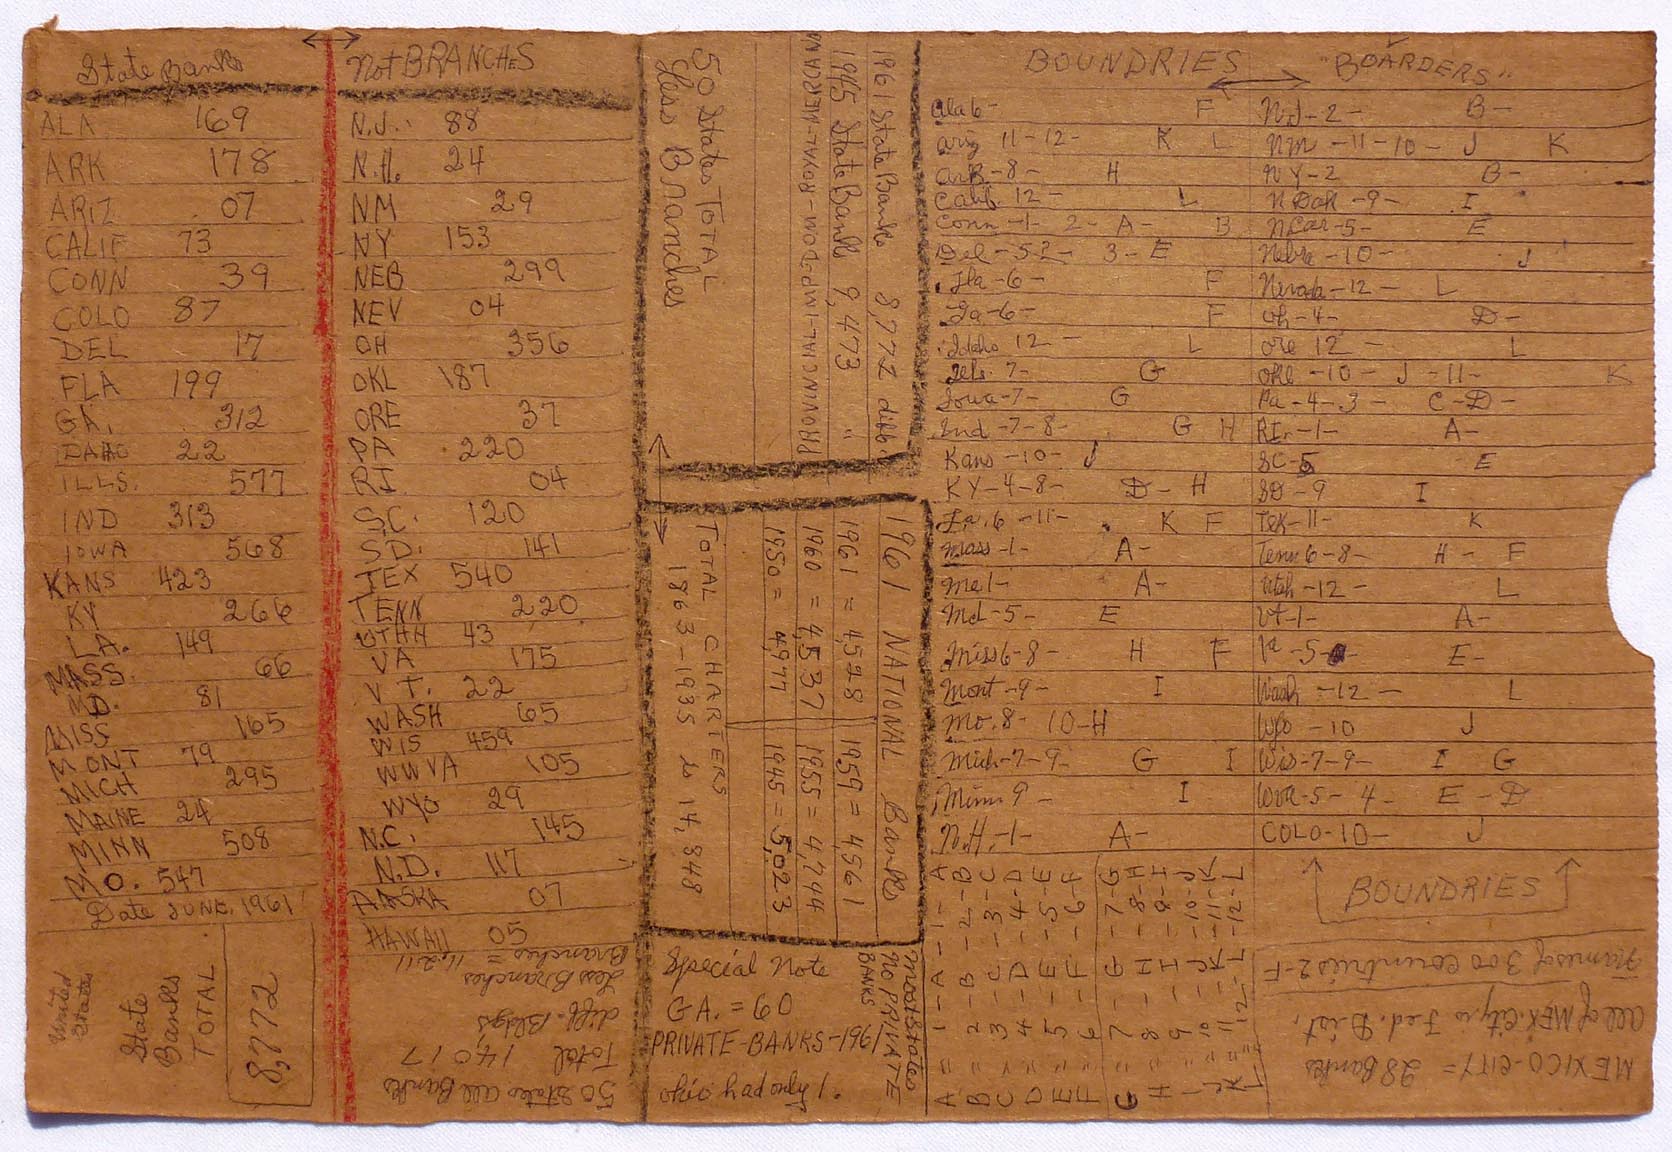 State Banks
ALA 169
ARK 178
ARIZ 07
CALIF 73
CONN 39
COLO 87
DEL 17
FLA 199
GA. 312
IDAHO 22
ILLS. 577
IND 313
IOWA 568
KANS 423
KY 266
LA. 149
MASS. 66
MD. 81
MISS 165
MONT 79
MICH 295
MAINE 24
MINN 508
MO. 547
Date JUNE, 1961
United States
State Banks
TOTAL
8,772
Not BRANCHES
N.J. 88
N.H. 24
NM 29
NY 153
NEB 299
NEV 04
OH 356
OKL 187
ORE 37
PA 220
RI 04
S.C. 120
SD. 141
TEX 540
TENN 220
UTAH 43
VA 175
VT. 22
WASH 65
WIS 459
WWVA 105
WYO 29
N.C. 145
N.D. 117
ALASKA 07
HAWAII 05
50 States all Banks
Total 14,017
diff. Bldgs,
Less Branches
Branches = 11,211
50 States TOTAL
Less Branches
1961 State Banks 8,772 diff.
1945 State Banks 9,473 "
PROVINCIAL-IMP-DOM-ROYAL-MERCAN
1961 NATIONAL Banks
1961 = 4,528 1959 = 4,561
1960 = 4,537 1955 = 4,744
1950 = 4,977 1945 = 5,023
TOTAL CHARTERS
1863-1935 is 14,348
Special Note
GA. = 60
PRIVATE-BANKS-1961
Ohio had only 1.
most States
No PRIVATE
BANKS
BOUNDRIES "BOARDERS"
Ala 6- F
Ariz 11-12- K L
Ark-8- H
Calif. 12- L
Conn-1- 2- A- B
Del-5- 3- E
Fla-6- F
Ga-6- F
Idaho 12- L
Ills. 7- G
Iowa-7- G
Ind-7-8- G H
Kans-10- J
KY-4-8- D- H
La. 6-11- K F
Mass-1- A-
Me 1- A-
Md-5- E
Miss 6-8- H F
Mont-9- I
Mo. 8- 10-H
Mich-7-9- G I
Minn 9- I
N.H.-1- A-
NJ-2- B-
NM-11-10- J K
NY-2 B-
N Dak-9- I
N Car-5- E
Nebr-10- J
Nevada-12- L
Oh-4- D-
Ore 12- L
Okl-10- J-11- K
Pa-4-3- C-D-
RI.-1- A-
SC-5 E
SD-9 I
Tex-11- K
Tenn 6-8- H- F
Utah-12- L
Vt-1- A-
Va-5- E-
Wash-12- L
Wyo-10 J
Wis-7-9- I G
WVA-5-4- E-D
COLO-10- J
A " 1--A-1-A
B " 2--B-2-B
C " 3--C-3-C
D " 4--D-4-D
E " 5--E-5-E
F " 6--F-6-F
G " 7--G-7-G
H " 8--H-8-H
I " 9--I-9-I
J " 10--J-10-J
K " 11--K-11-K
L " 12--L-12-L
BOUNDRIES
MEXICO-CITY = 28 Banks
all of MEX. City, is Fed. Dist.
Names of 300 countries 2-F